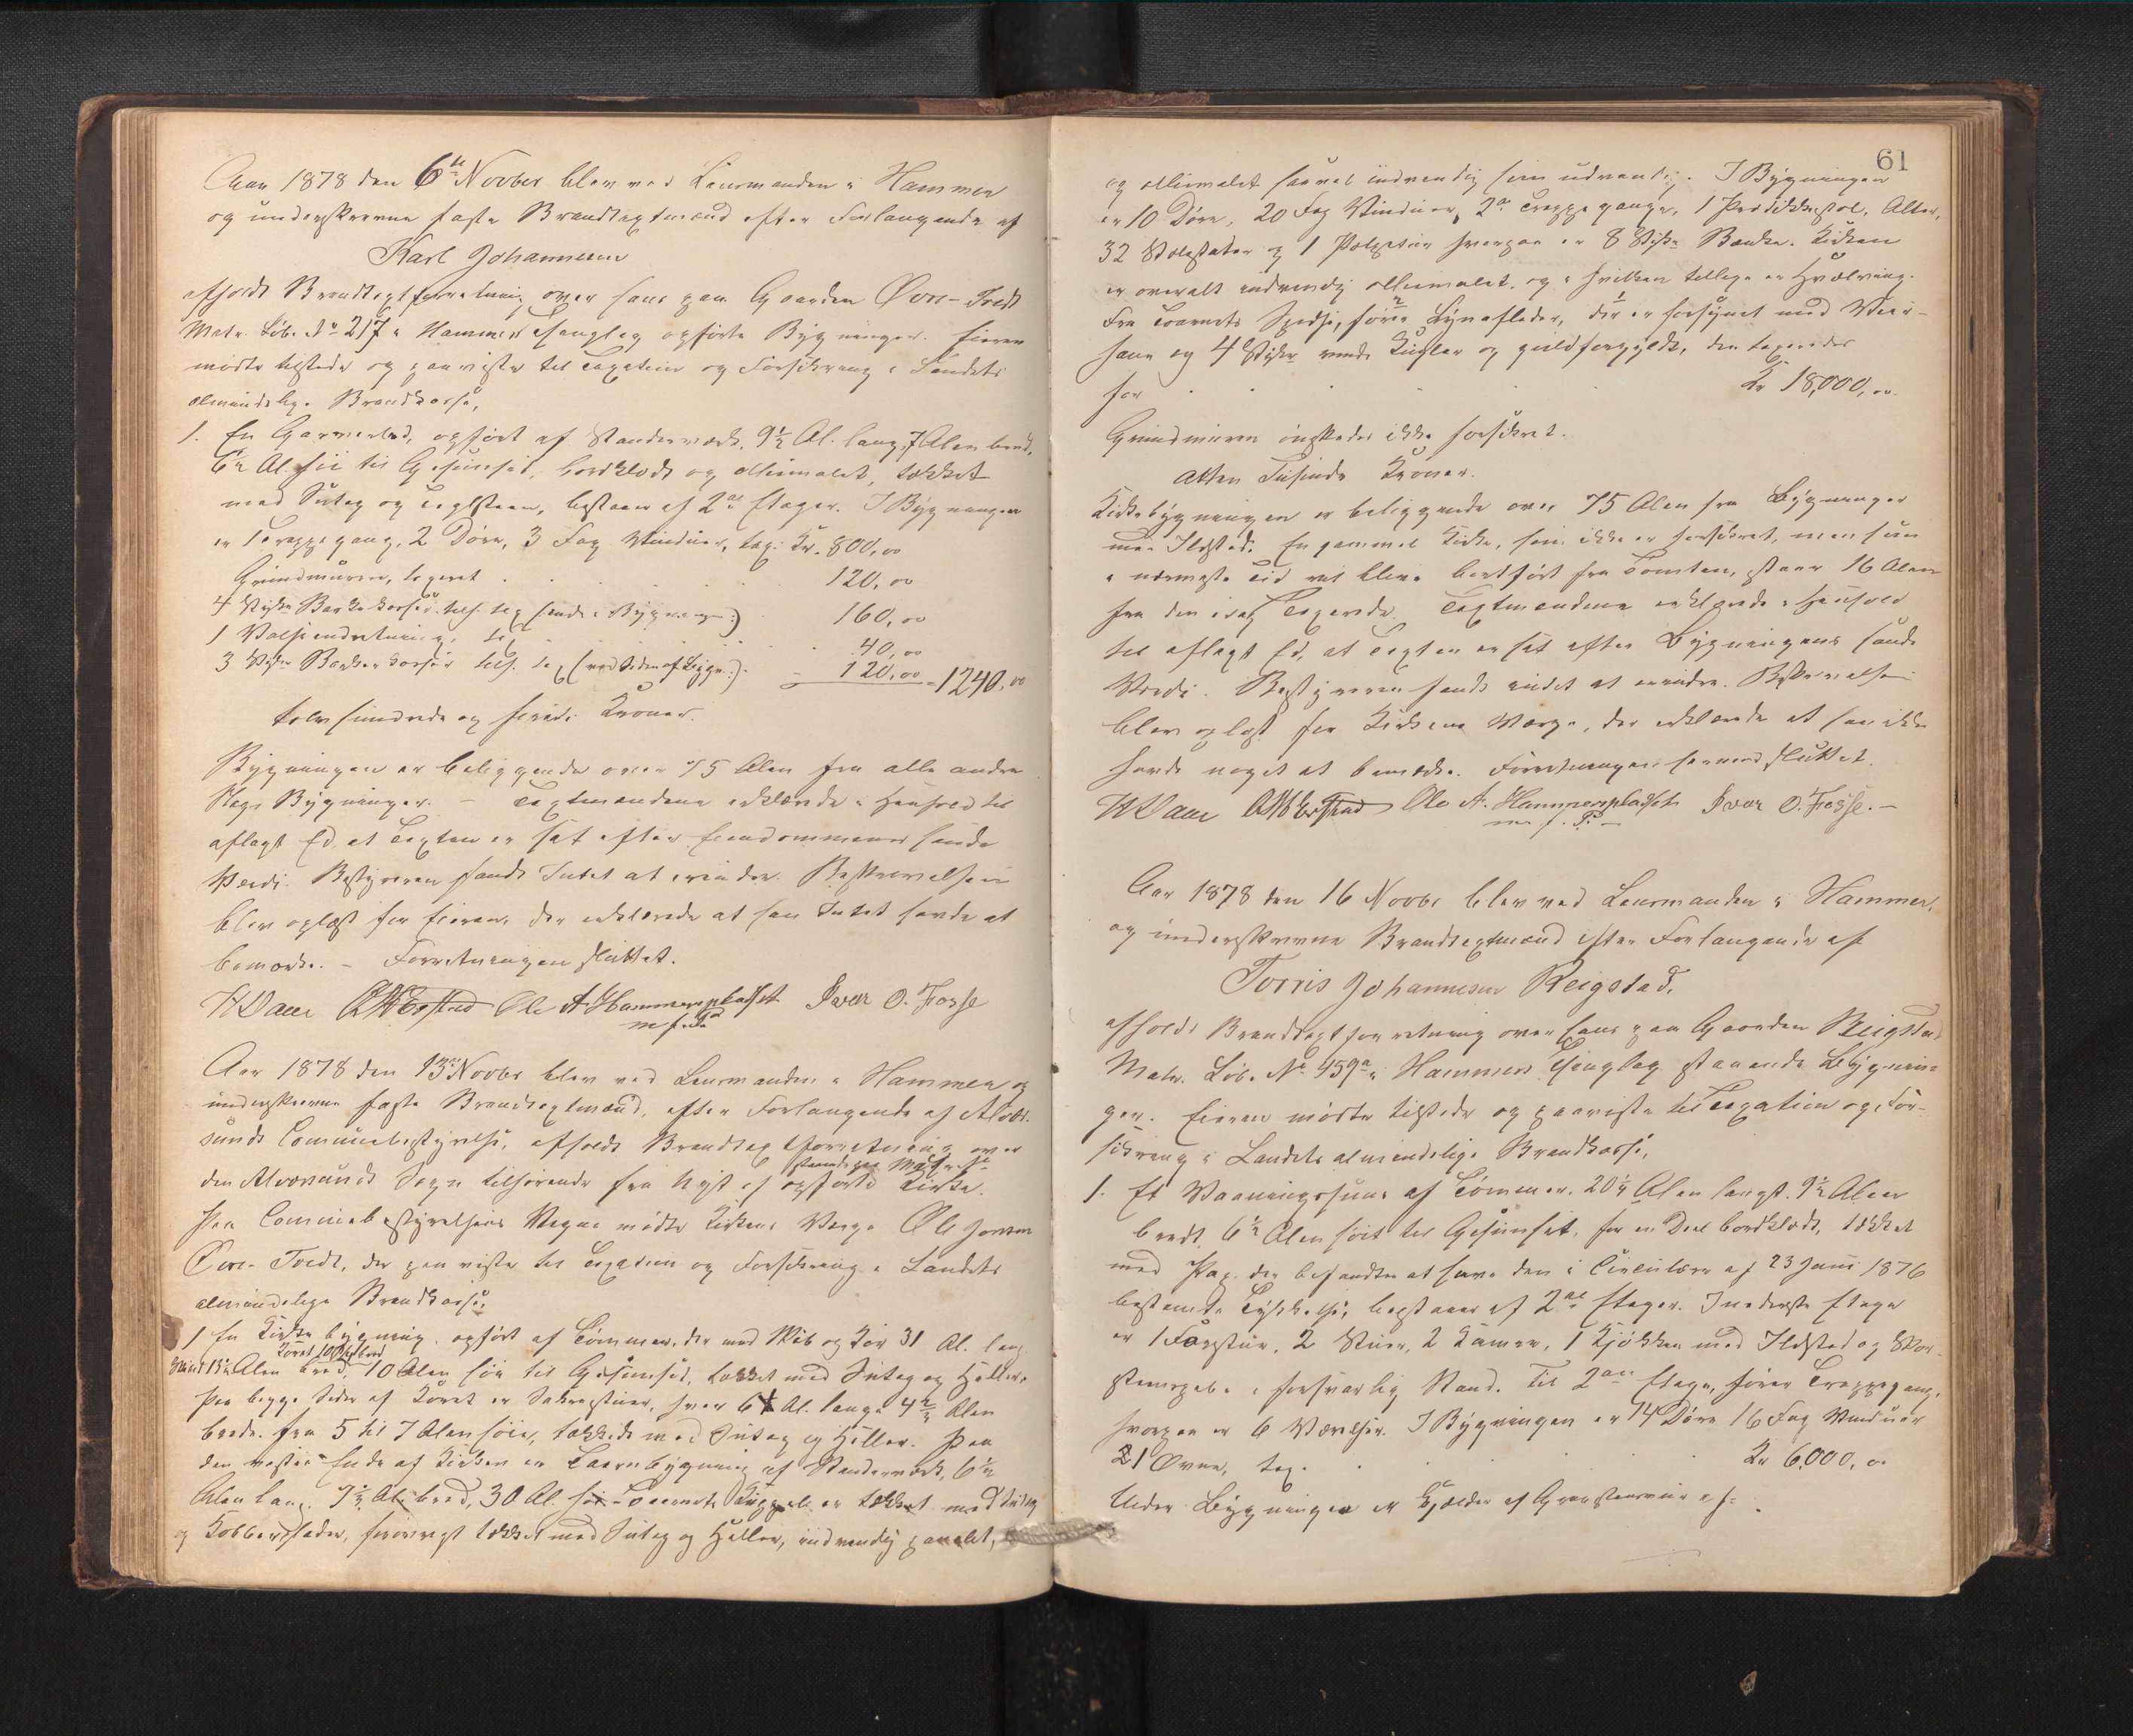 Aar 1878 den 6te Novber blev ved Lensmanden i Hammer
og underskrevne faste Brandtaxtmænd efter Forlangende af
Karl Johannesen
afholdt Brandtaxtforretning over hans paa Gaarden Øvre-Tvedt
Matr. Löb. No 217 i Hammer Thinglag opførte Bygninger. Eieren
mödte tilstede og paaviste til Taxation og Forsikring i Landets
almindelige Brandkasse,
1. En Garverbod, opfört af Standerværk, 9½ Al. lang, 7 Alen bred,
6½ Al. höi til Gesimset, bordklædt og oliemalet, tækket
med Sutag og Taglsteen, bestaaer af 2de Etager. I Bygningen
er 1 Trappegang, 2 Döre, 3 Fag Vinduer, tax: Kr. 800,00
Grundmuren, taxeret 120,00
4 Stykr Barkekasser tils. tax (inde i Bygningen) 160,00
1 Valseindretning, tax 40,00
3 Stykr Barkekasser tils. tax (ved Siden af Bygn:) 120,00 = 1240,00
tolv hundrede og firti Kroner.
Bygningen er beliggende over 75 Alen fra alle andre
Slags Bygninger. – Taxtmændene erklærede i Henhold til
aflagt Ed, at Taxten er sat efter Eiendommenes sande
Værdi. Bestyreren fandt Intet at erindre. Beskrivelsen
blev oplæst for Eieren, der erklærede at han Intet havde at
bemærke. – Forretningen sluttet.
Ole A. Hammerspladset Ivar O. Fosse
m f. P
Aar 1878 den 13de Novbr blev ved Lensmanden i Hammer og
underskrevne faste Brandtaxtmænd, efter Forlangende af Alvær-
sunds Communebestyrelse, afholdt Brandtaxtforretning over
staaende paa
den Alværsunds Sogn tilhørende fra Nyt af opførte Kirke.
Paa Communebestyrelsens Vegne mödte Kirkens Værge Ole Jonsen
Øvre-Tvedt, der paaviste til Taxation og Forsikring i Landets
almindelige Brandkasse,
1 En Kirkebygning, opfört af Tömmer, der med Skib og Kor 31 Al. lang
Koret 10 Alen bred
Skibet 15½ Alen bred, 10 Alen höi til Gesimset, tækket med Sutag og Heller,
Paa begge Sider af Koret er Sakristier, hver 6 Al. lange 4½ Alen
brede, fra 5 til 7 Alen höie, tækkede med Sutag og Heller. Paa
den vestre Ende af Kirken er Taarnbygning af Standerværk, 6½
Alen lang, 7½ Al. bred, 30 Al. höi. Taarnets Kuppel er tækket med Sutag
og Kobberplader, forövrigt tækket med Sutag og Heller, indvendig panelet,
61
og oliemalet saavel indvendig som udvendig. I Bygningen
er 10 Döre, 20 Fag Vinduer, 2de Trappegange, 1 Prædikestol, Alter,
32 Stolestader og 1 hvorpaa er 8 Stykr Bænke. Kirken
er overalt indvendig oliemalet, og i hvilken tillige er Hvælving.
Fra Taarnets Spidse, förer Lynafleder, der er forsynet med Veir-
hane og 4 Stykr runde Kugler og guldforgyldt, den taxeredes
for Kr 18,000,00.
Grundmuren önskedes ikke forsikret.
Atten Tusinde Kroner.
Kirkebygningen er beliggende over 75 Alen fra Bygninger
med Ildsted. En gammel Kirke, som ikke er forsikret, men som
i nærmeste Tid vil blive bortfört fra Tomten, staar 16 Alen
fra den idag Taxerede. Taxtmændene erklærede i Henhold
til aflagt Ed, at Taxten er sat efter Bygningens sande
Værdi. Bestyreren fandt intet at erindre. Beskrivelsen
blev oplæst for Kirkens Værge, der erklærede at han ikke
havde noget at bemærke. Forretningen hermed sluttet.
Ole A. Hammerspladset Ivar O. Fosse. –
m. f. P. –
Aar 1878 den 16 Novbr blev ved Lensmanden i Hammer,
og underskrevne Brandtaxtmænd efter Forlangende af
Torris Johannesen Reigstad,
afholdt Brandtaxtforretning over hans paa Gaarden Reigstad
Matr. Löb. No 459a i Hammers Thinglag staaende Bygnin-
ger. Eieren mödte tilstede og paaviste til Taxation og For-
sikring i Landets almindelige Brandkasse,
1. Et Vaaningshuus af Tömmer, 20½ Alen langt, 9½ Alen
bredt, 6½ Alen höit til Gesimset, for en Deel bordklædt, tækket
med Pap, der befandtes at have den i Circulære af 23 Juni 1876
bestemte Tykkelse, bestaaer af 2de Etager. I nederste Etage
er 1 Forstue, 2 Stuer, 2 Kamre, 1 Kjökken med Ildsted og Skor-
steenspibe i forsvarlig Stand. Til 2den Etage, förer Trappegang,
hvorpaa er 6 Værelser. I Bygningen er 14 Döre 16 Fag Vinduer
1 Ovne, tax. Kr 6,000,00
Under Bygningen er Kjælder af Graasteensmuur af